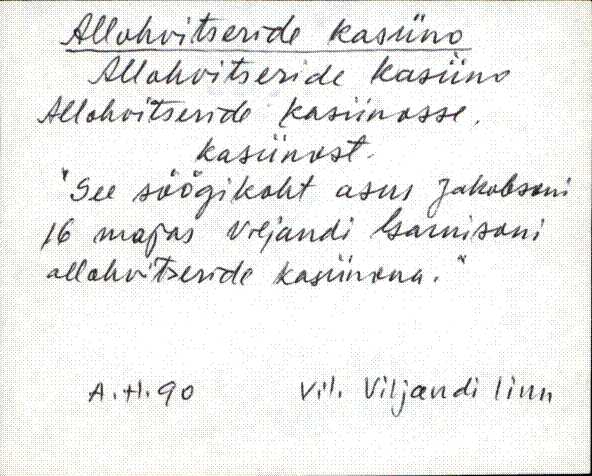 Allohvitseride kasiino
Allohvitseride kasiino
Allohvitseride kasiinosse,
kasiinost.
"See söögikoht asus Jakobsoni
16 majas Viljandi Garnisoni
allohvitseride kasiinona."
A.H.90 Vil. Viljandi linn